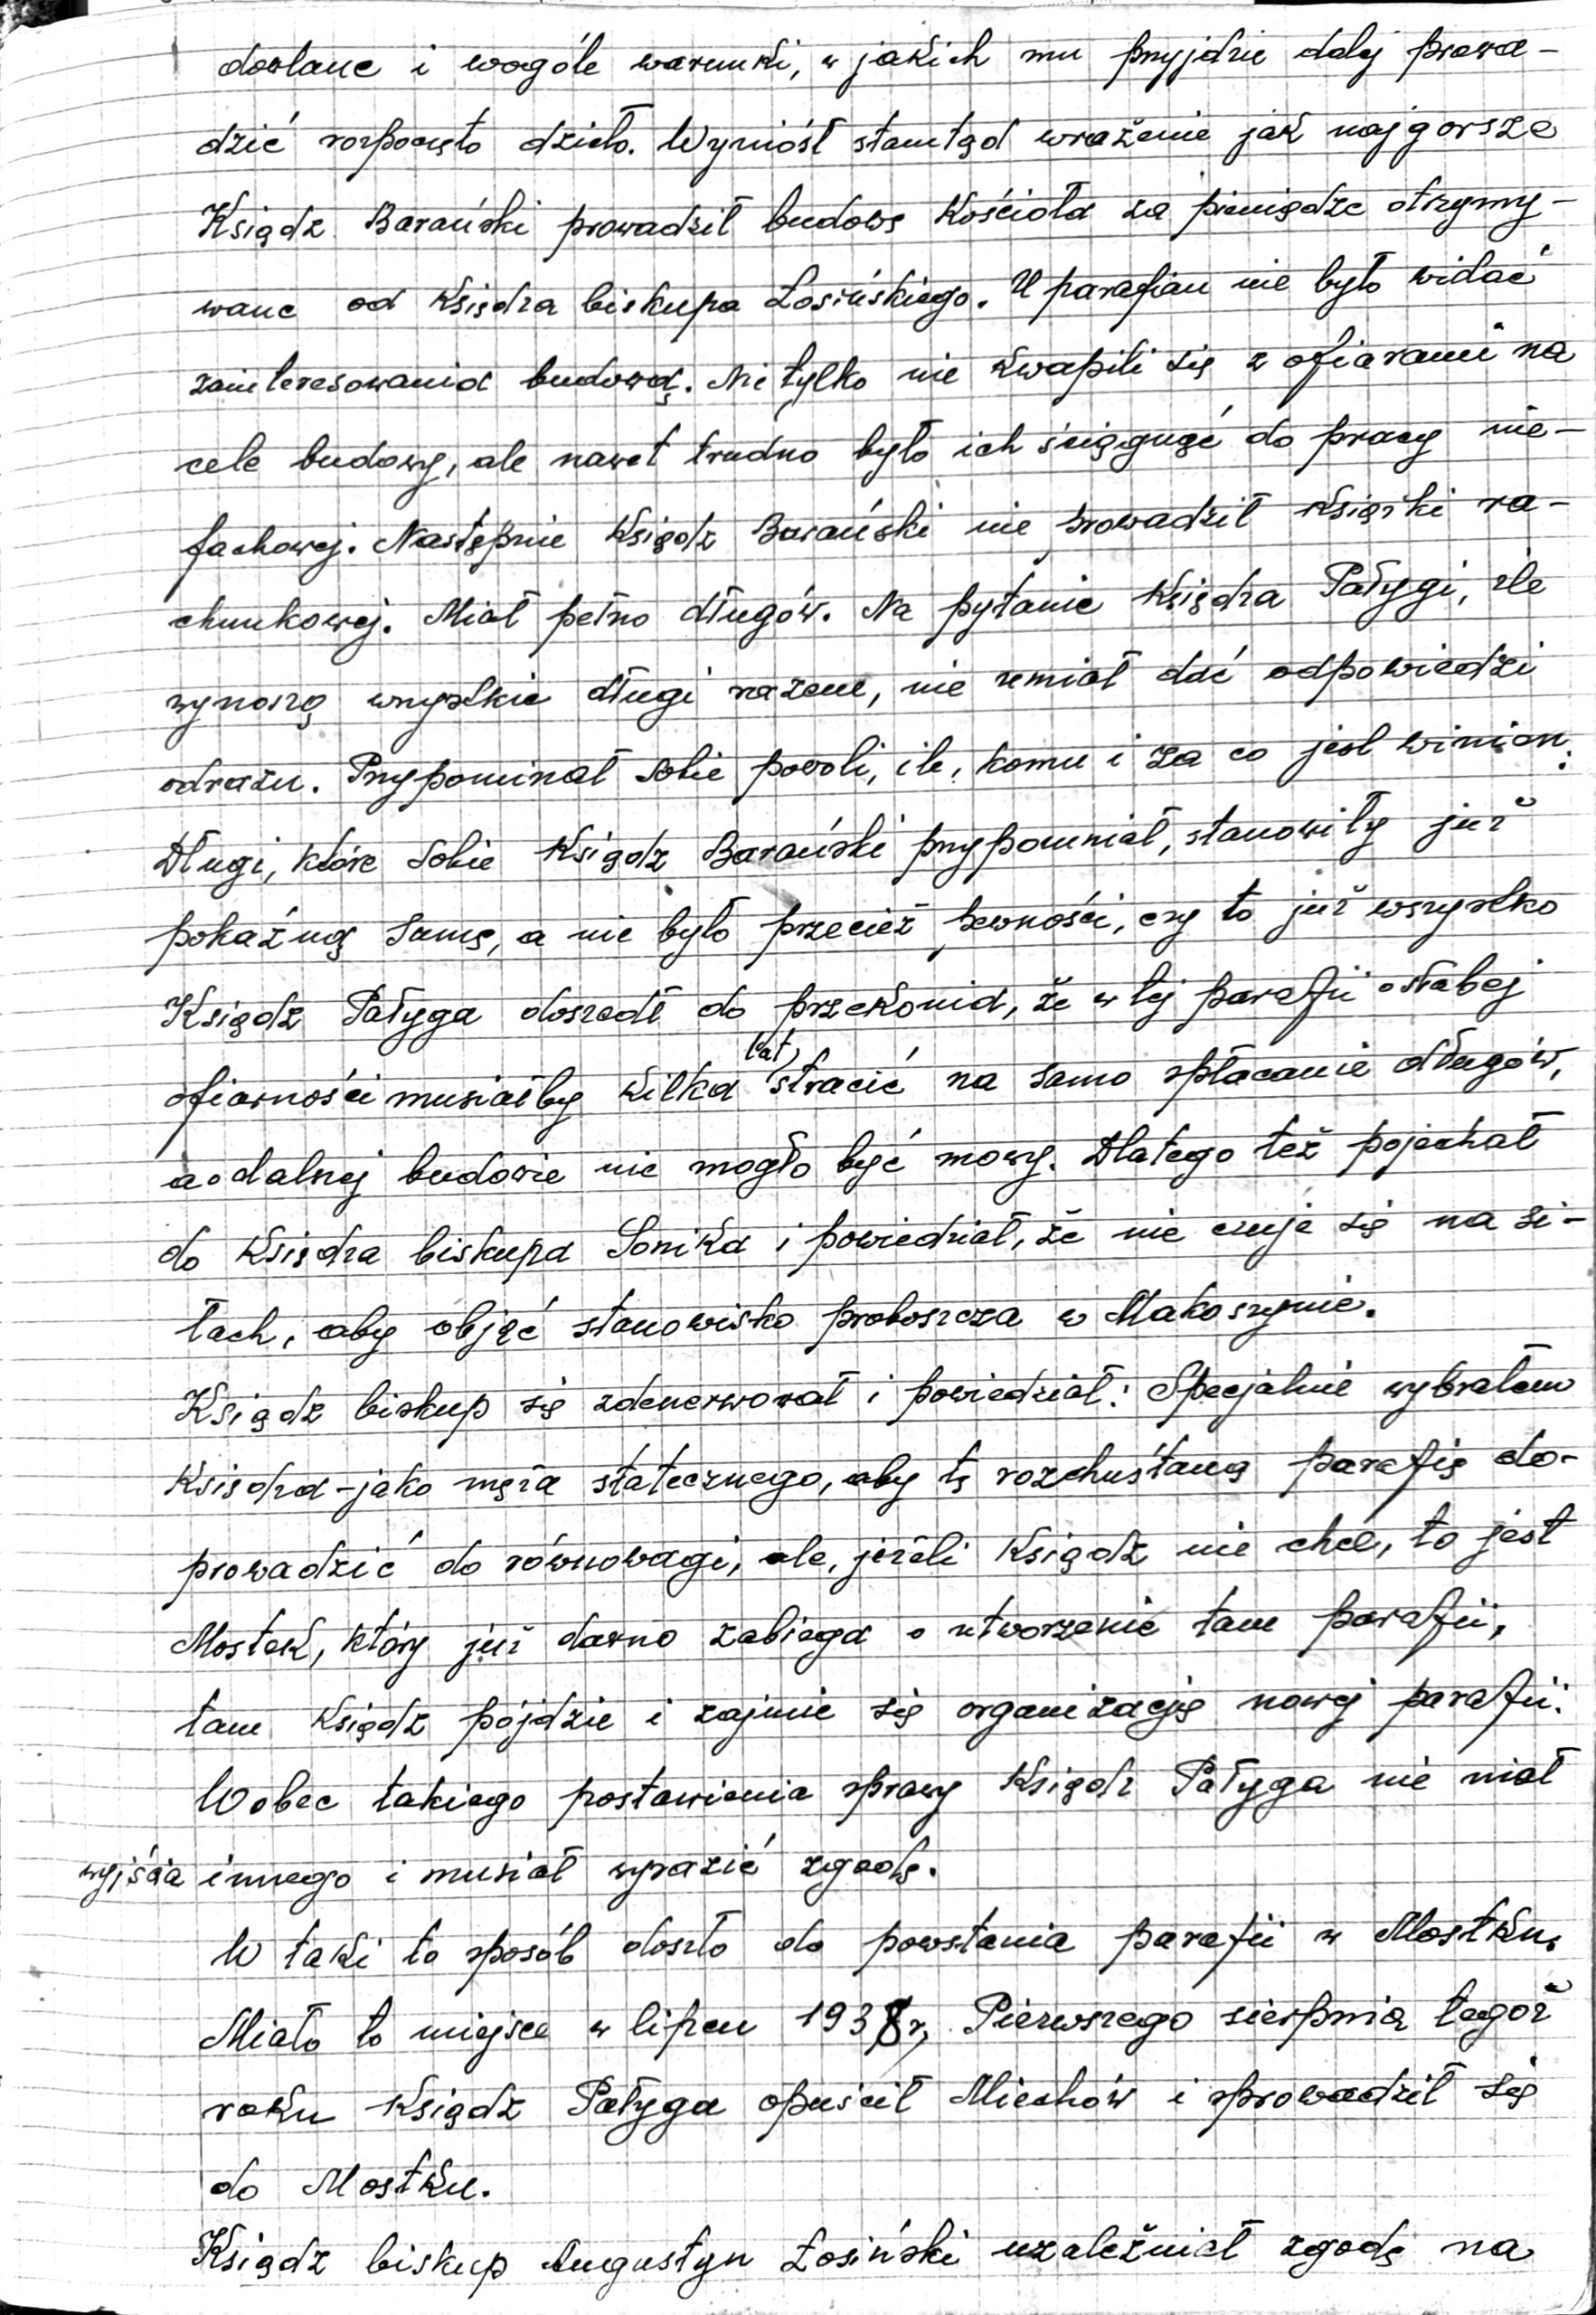 dowlane i wogóle warunki, w jakich mu przyjdzie dalej prowa-
dzić rozpoczęto dzieło. Wyniósł stamtąd wrażenie jak najgorsze
Ksiądz Barański prowadził budowę Kościoła za pieniądze otrzymy-
wane od Księdza biskupa Łosińskiego. U parafian nie było widać
zainteresowania budową. Nie tylko nie kwapili się z ofiarami na
cele budowy, ale nawet trudno było ich ściągnąć do pracy nie-
fachowej. Następnie Ksiądz Barański nie prowadził Książki ra-
chunkowej. Miał pełno długów. Na pytanie Księdza Pałygi, ile
wynoszą wszystkie długi razem, nie umiał dać odpowiedzi
odrazu. Przypominał sobie powoli, ile, komu i za co jest winien.
Długi, które sobie Ksiądz Barański przypomniał, stanowiły już
pokaźną sumę, a nie było przecież pewności, czy to już wszystko
Ksiądz Pałyga doszedł do przekonia, że w tej parafii o słabej
ofiarności musiałby kilka lat, stracić na samo spłacanie długów,
a o dalszej budowie nie mogło być mowy. Dlatego też pojechał
do Księdza biskupa Sonika i powiedział, że nie czuje się na si-
łach, aby objąć stanowisko proboszcza w Makoszynie.
Ksiądz biskup się zdenerwował i powiedział: Specjalnie wybrałem
Księdza - jako męża statecznego, aby tę rozchuśtaną parafię do-
prowadzić do równowagi, ale, jeżeli Ksiądz nie chce, to jest
Mostek, który już dawno zabiega o utworzenie tam parafii,
tam Ksiądz pójdzie i zajmie się organizacją nowej parafii.
Wobec takiego postawienia sprawy Ksiądz Pałyga nie miał
wyjścia innego i musiał wyrazić zgodę.
W taki to sposób doszło do powstania parafii w Mostku.
Miało to miejsce w lipcu 1938 r, Pierwszego sierpnia tegoż
roku Ksiądz Pałyga opuścił Miechów i sprowadził się
do Mostku.
Ksiądz biskup Augustyn Łosiński uzależniał zgodę na